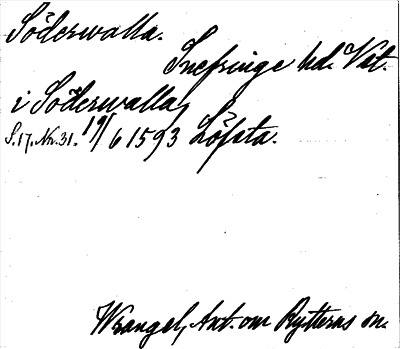 Söderwalla.
Snefringe hd. Vst.
i Söderwalla,
S. 17. Nr. 31. 19/6 1593 Löfsta.
Wrangel, Ant. om Rytterns sn.